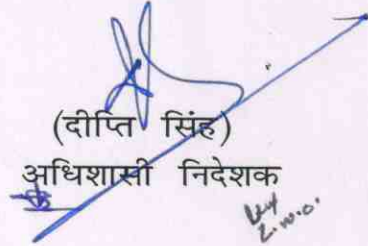 (दीप्ति सिंह)
अधिशासी निदेशक